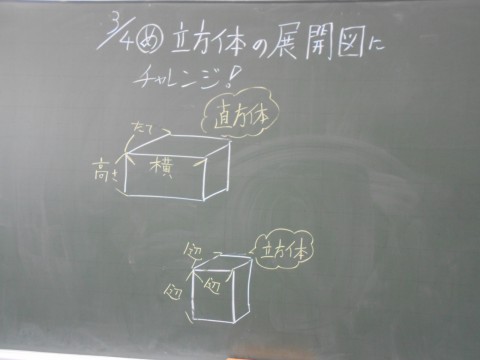 3/4 め 立方体の展開図に
チャレンジ!
直方体
たて
高さ
横
立方体
辺
辺
辺